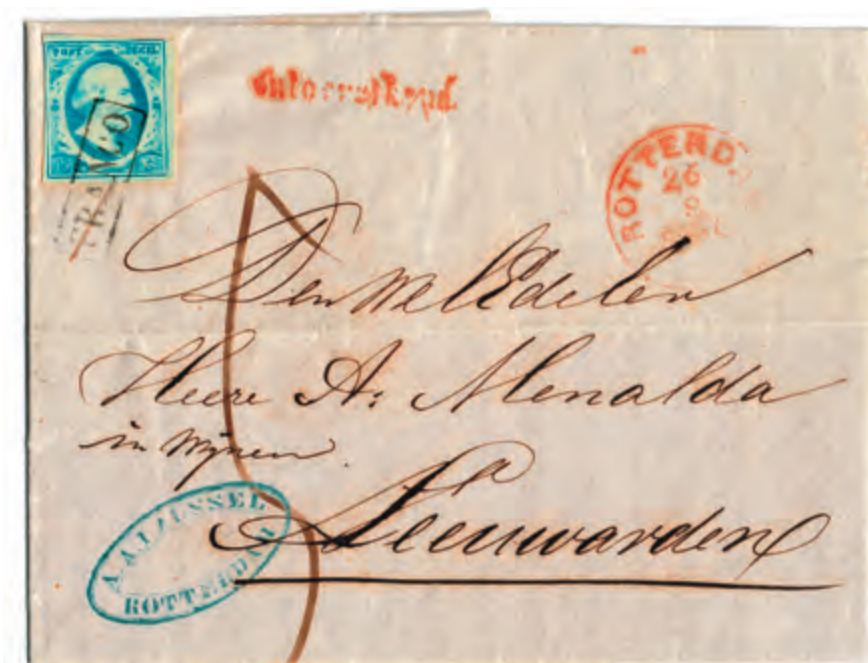 POST ZEGEL
FRANCO
Ontoereikend
ROTTERD
26
9
Den Wel Edelen
Heere A: Menalda
in Wijnen
Leeuwarden
ROTTERDAM
5